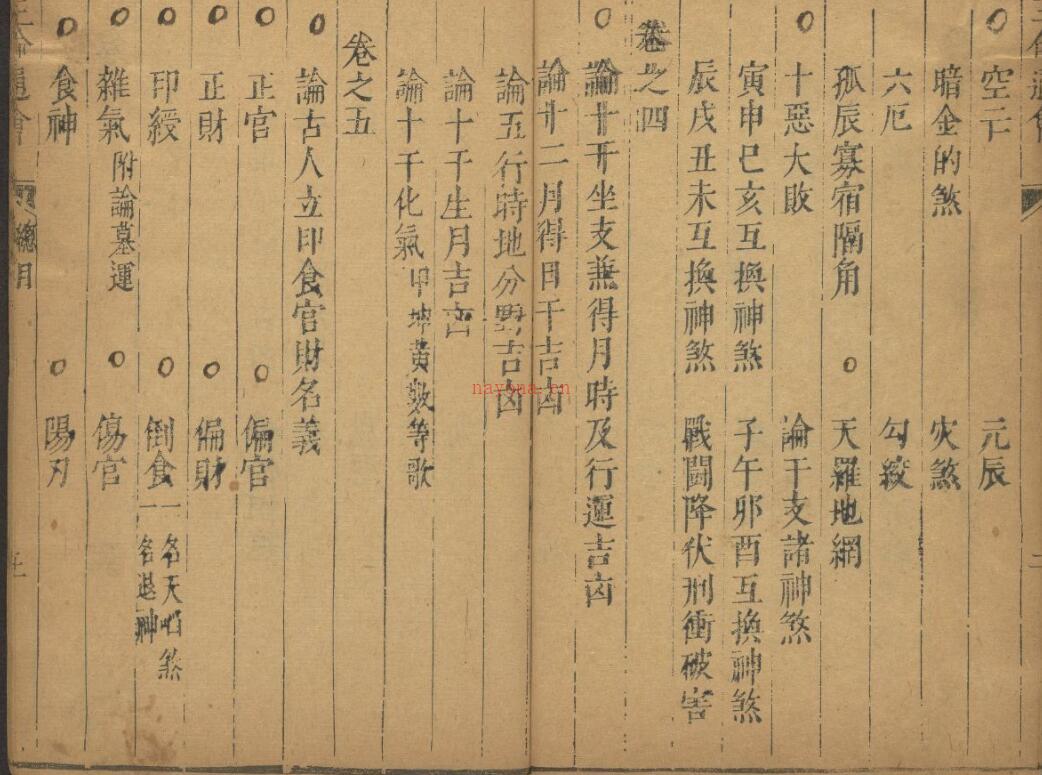 ○空亡　元辰
暗金的煞　灾煞
六厄　勾絞
孤辰寡宿隔角　○天羅地網
○十惡大敗　論干支諸神煞
寅申巳亥互換神煞　子午卯酉互換神煞
辰戌丑未互換神煞　戰鬪降伏刑衝破害
卷之四
○論十干坐支兼得月時及行運吉凶
論十二月得日干吉凶
論五行時地分野吉凶
論十干生月吉凶
論十干化氣 甲坤黃數等歌
卷之五
○論古人立印食官財名義
○正官　○偏官
○正財　○偏財
○印綬　○倒食 一名天㗖煞 一名退神
○雜氣 附論墓運　○傷官
○食神　○陽刃
總目
nayona.cn